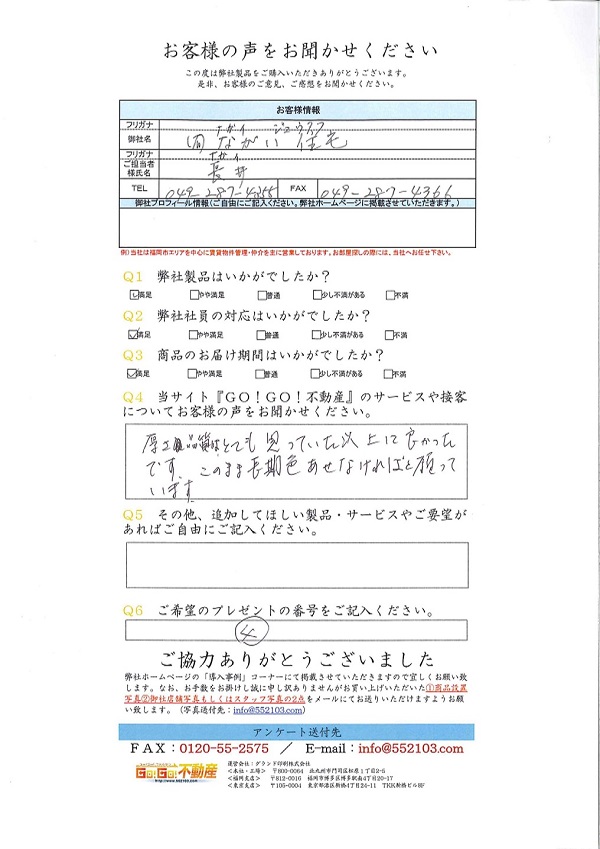 お客様の声をお聞かせください
この度は弊社製品をご購入いただきありがとうございます。
是非、お客様のご意見、ご感想をお聞かせください。
お客様情報
フリガナ ナガイ ジュウタク
御社名 (有)ながい住宅
フリガナ ナガイ
ご担当者様氏名 長井
TEL 049-287-4355 FAX 049-287-4366
御社プロフィール情報(ご自由にご記入ください。弊社ホームページに掲載させていただきます。)
例)当社は福岡市エリアを中心に賃貸物件管理・仲介を主に営業しております。お部屋探しの際には、当社へお任せ下さい。
Q1 弊社製品はいかがでしたか?
満足 やや満足 普通 少し不満がある 不満
Q2 弊社社員の対応はいかがでしたか?
満足 やや満足 普通 少し不満がある 不満
Q3 商品のお届け期間はいかがでしたか?
満足 やや満足 普通 少し不満がある 不満
Q4 当サイト『GO!GO!不動産』のサービスや接客
についてお客様の声をお聞かせください。
厚さ品質はとても思っていた以上に良かった
です。このまま長期色あせなければと願って
います
Q5 その他、追加してほしい製品・サービスやご要望が
あればご自由にご記入ください。
Q6 ご希望のプレゼントの番号をご記入ください。
4
ご協力ありがとうございました
弊社ホームページの「導入事例」コーナーにて掲載させていただきますので宜しくお願い致
します。なお、お手数をお掛けし誠に申し訳ありませんがお買い上げいただいた①商品設置
写真②御社店舗写真もしくはスタッフ写真の2点をメールにてお送りいただけますようお願
い致します。(写真送付先:info@552103.com)
アンケート送付先
FAX:0120-55-2575 / E-mail:info@552103.com
GO!GO!不動産
運営会社:グランド印刷株式会社
<本社・工場> 〒800-0064 北九州市門司区松原1丁目2-5
<福岡支店> 〒812-0016 福岡市博多区博多駅南4丁目20-17
<東京支店> 〒105-0004 東京都港区新橋4丁目24-11 TKK新橋ビル8F